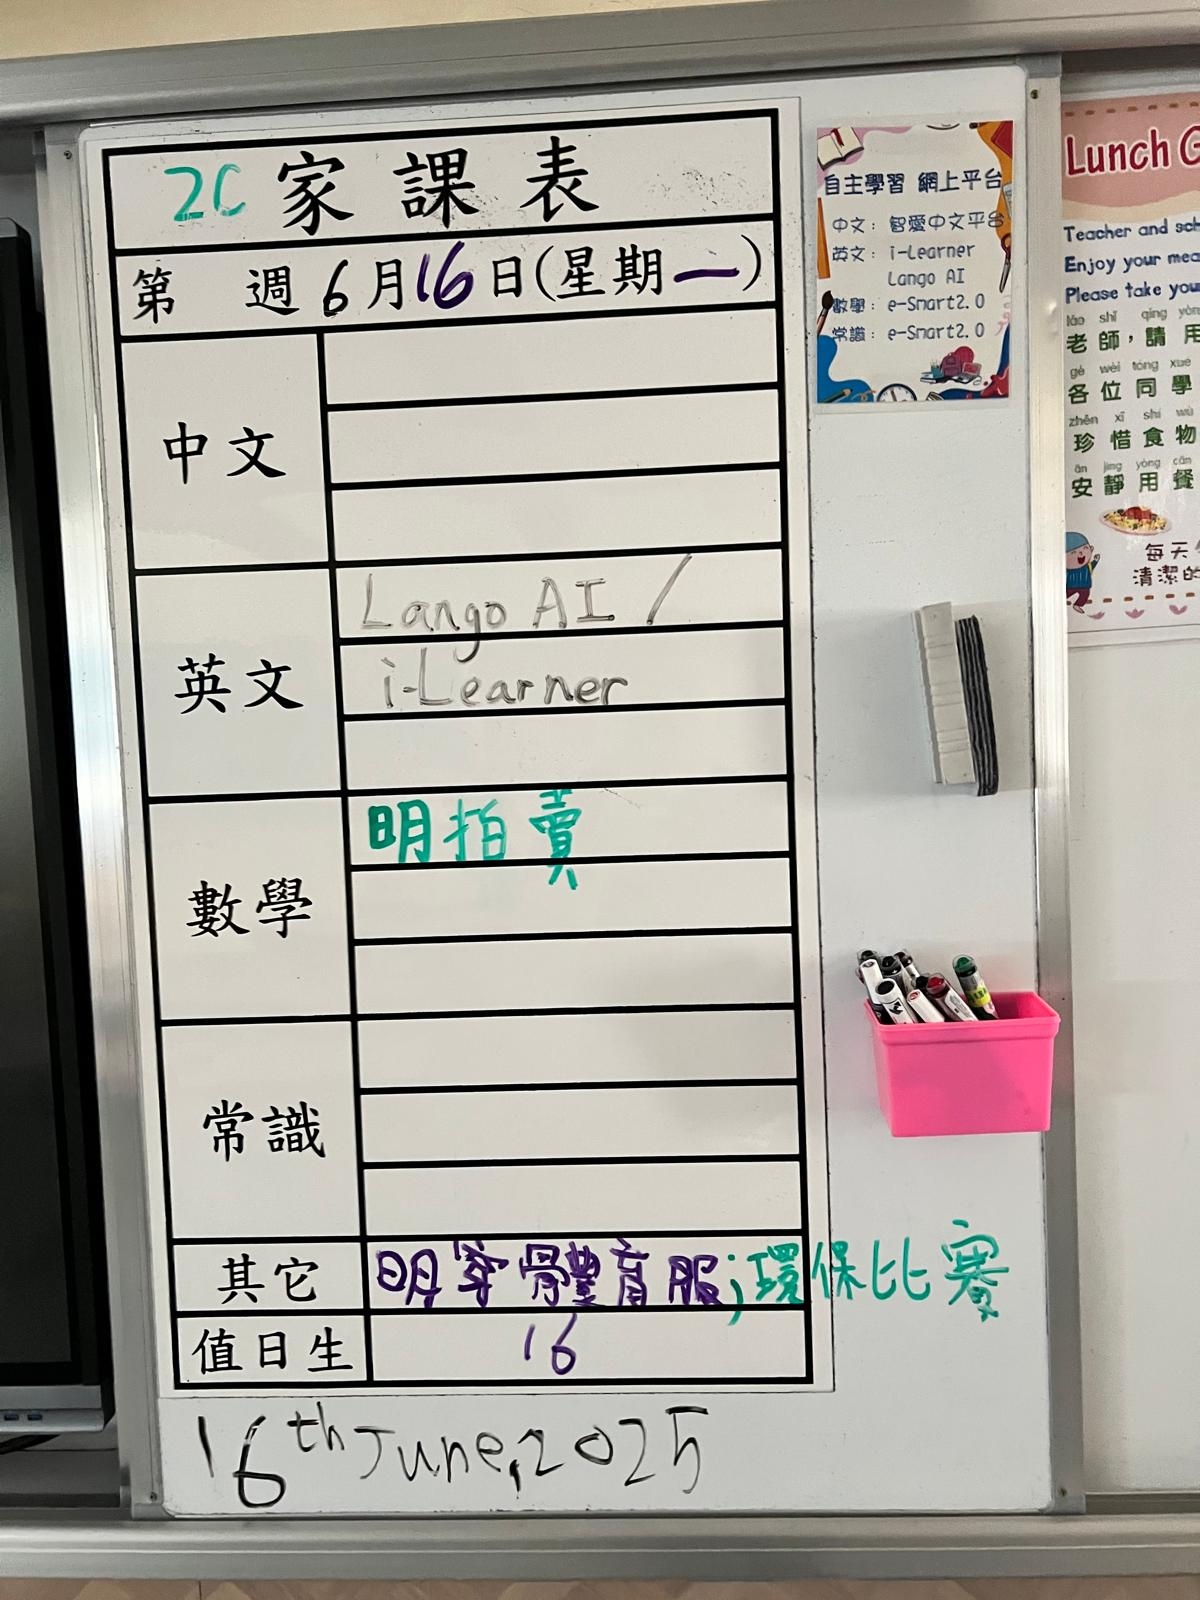 2C 家課表
第 週 6月16日(星期一)
中文
英文
Lango AI /
i-Learner
數學
明拍賣
常識
其它
明穿體育服;環保比賽
值日生
16
16th June, 2025
自主學習 網上平台
中文: 智愛中文平台
英文: i-Learner
Lango AI
數學: e-Smart2.0
常識: e-Smart2.0
Lunch G
Teacher and sch
Enjoy your mea
Please take you
lǎo shī qǐng yòn
老師,請用
gè wèi tóng xué
各位同學
zhēn xī shí wù
珍惜食物
ān jìng yòng cān
安靜用餐
每天
清潔的